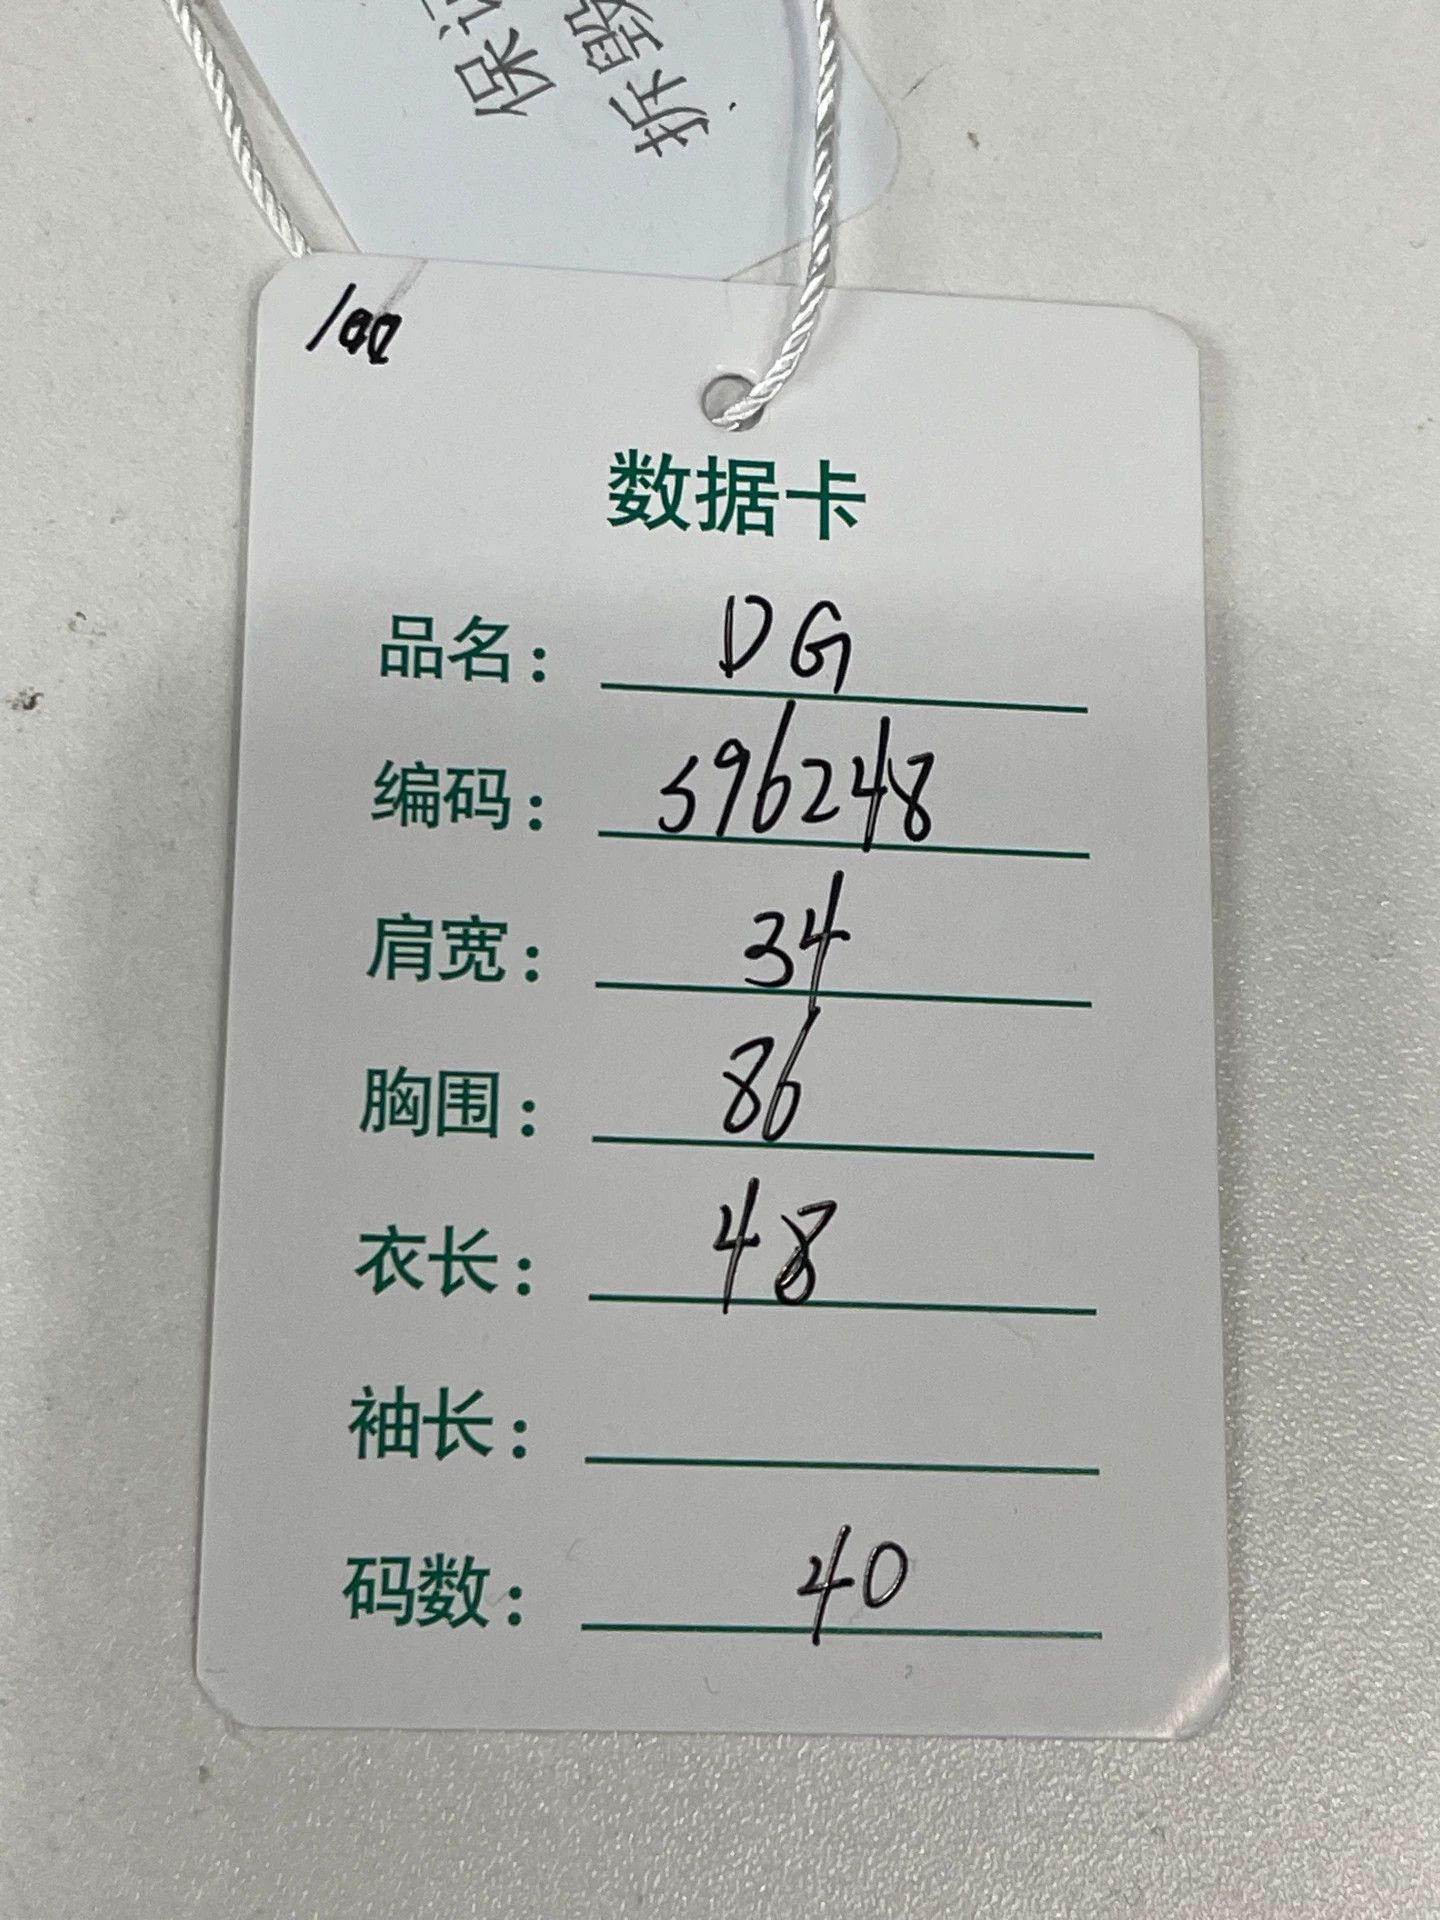 保
折毁
100
数据卡
品名： DG
编码： 596248
肩宽： 34
胸围： 86
衣长： 48
袖长：
码数： 40